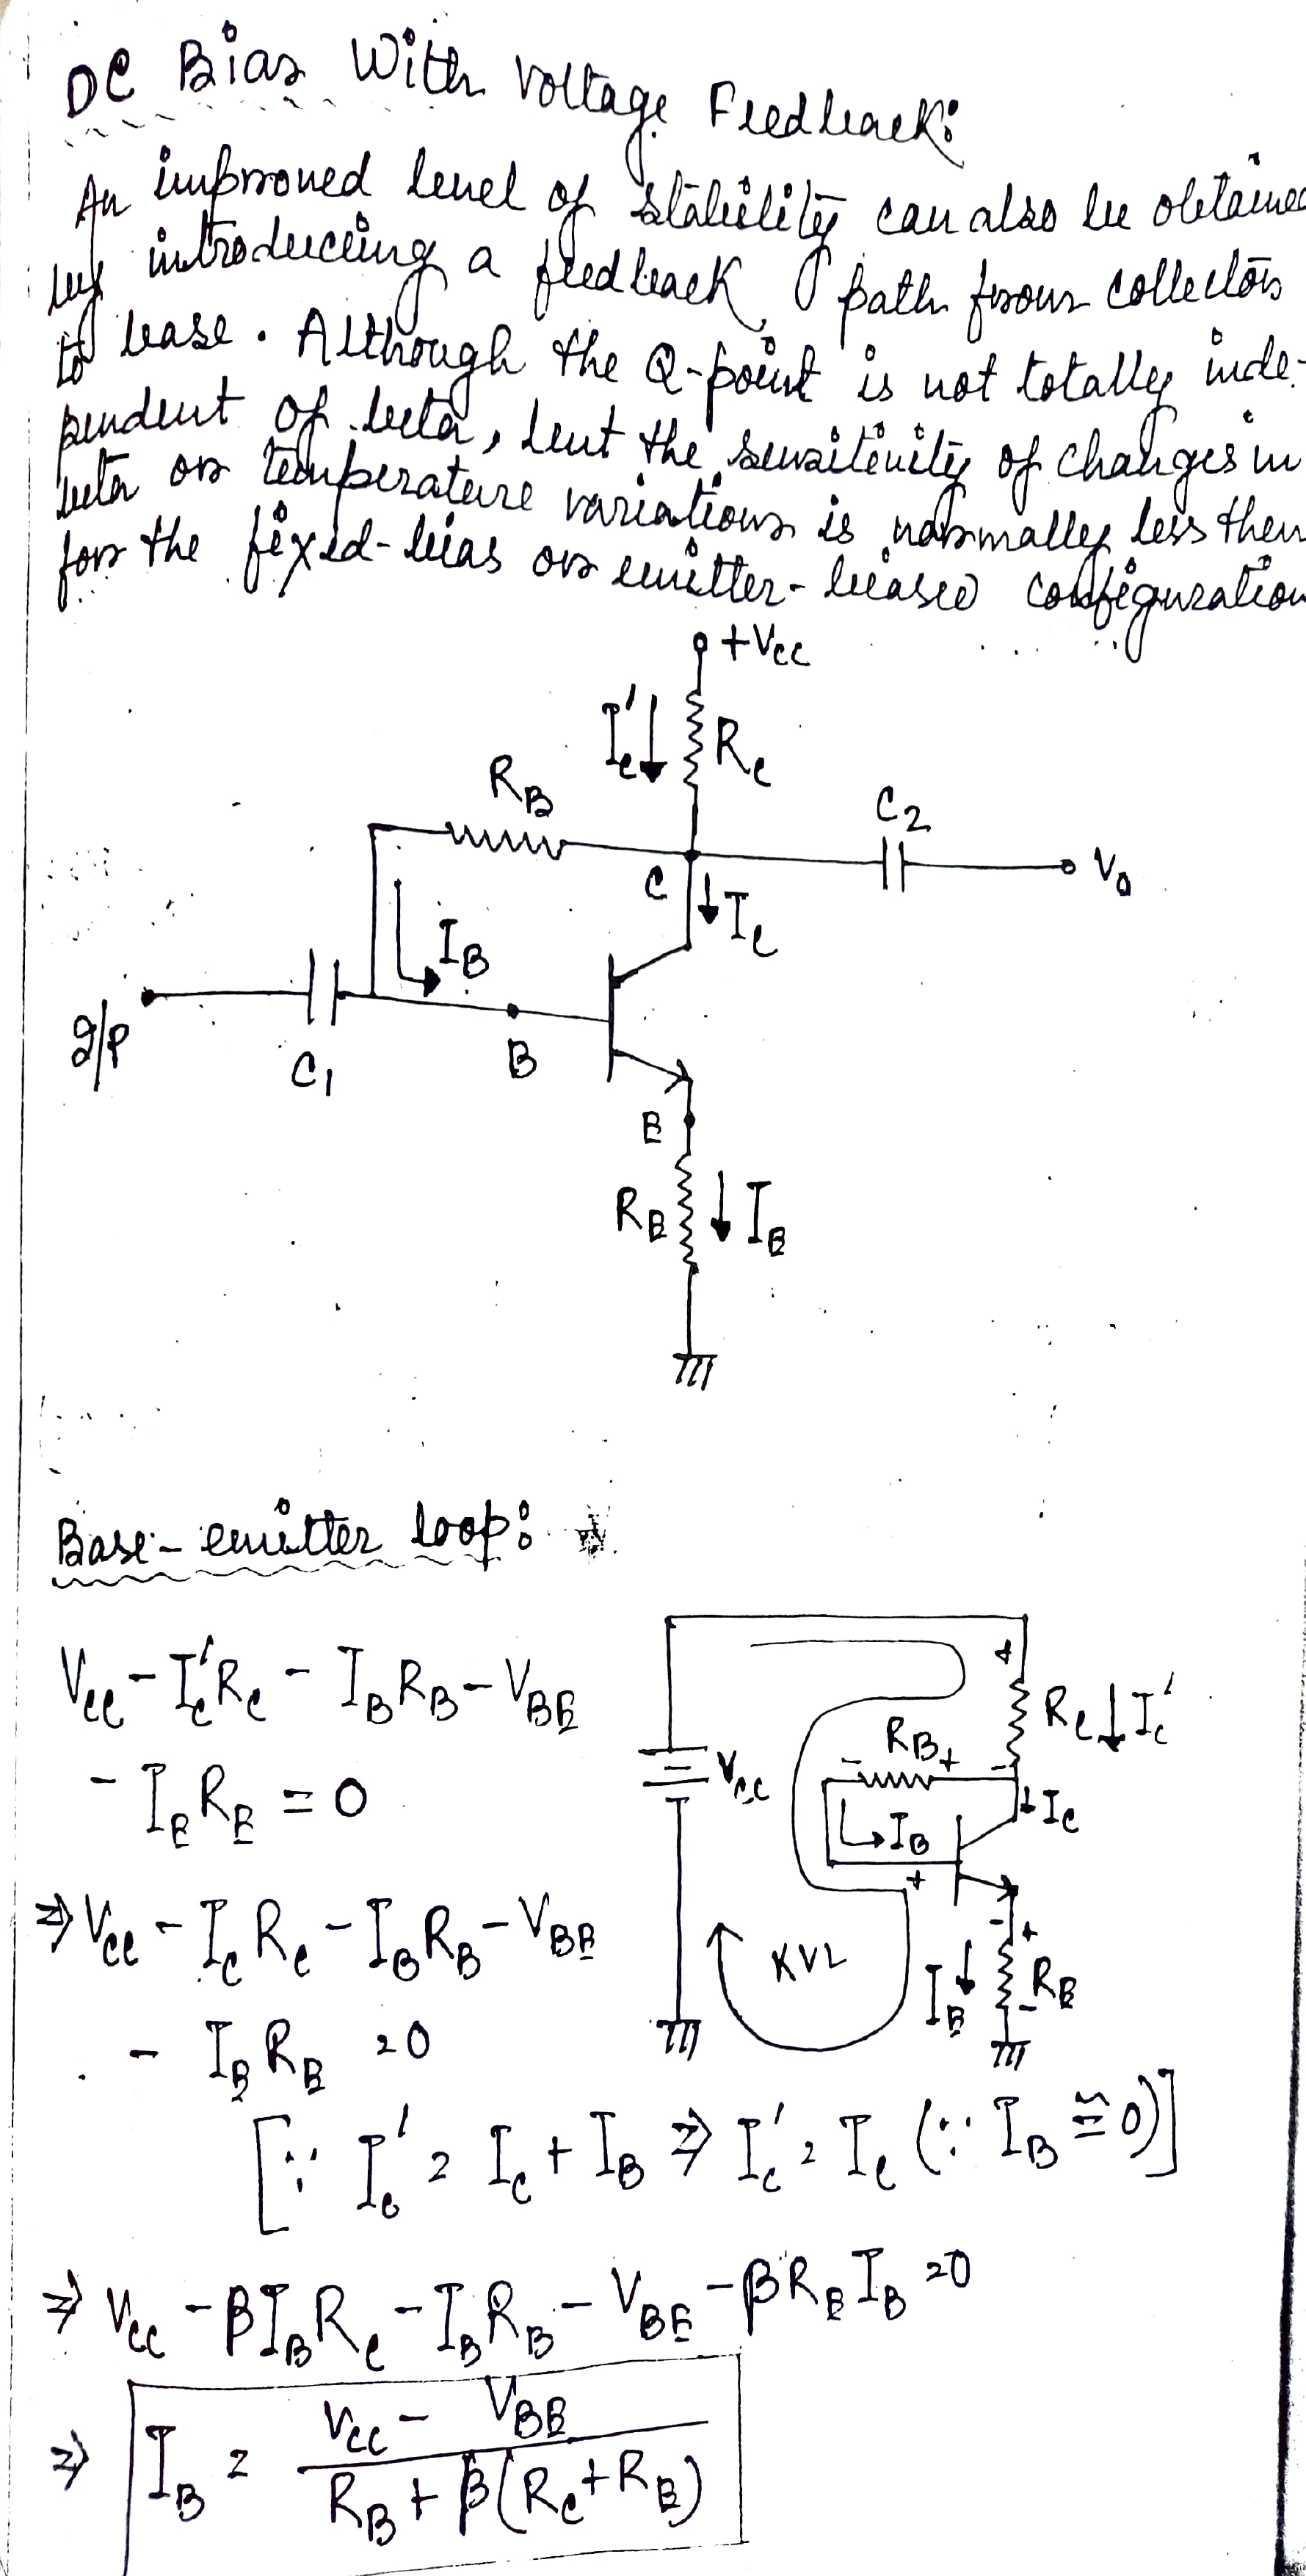 DC Bias With Voltage Feedback:
An improved level of stability can also be obtained
by introducing a feedback path from collector
to base. Although the Q-point is not totally inde-
pendent of beta, but the sensitivity of changes in
beta or temperature variations is normally less then
for the fixed-bias or emitter-biased configuration
+VCC
IC' RC
RB
C2
C
IC
V0
IB
I/P
C1
B
E
RE IE
Base-emitter loop:
VCC - IC'RC - IBRB - VBE
- IERE = 0
RC IC'
RB
VCC
IC
IB
⇒ VCC - ICRC - IBRB - VBE
KVL
IE RE
- IERE = 0
[∵ IC' = IC + IB ⇒ IC' = IC (∵ IB ≅ 0)]
⇒ VCC - βIBRC - IBRB - VBE - βREIB = 0
⇒ IB = VCC - VBE / RB + β(RC + RE)